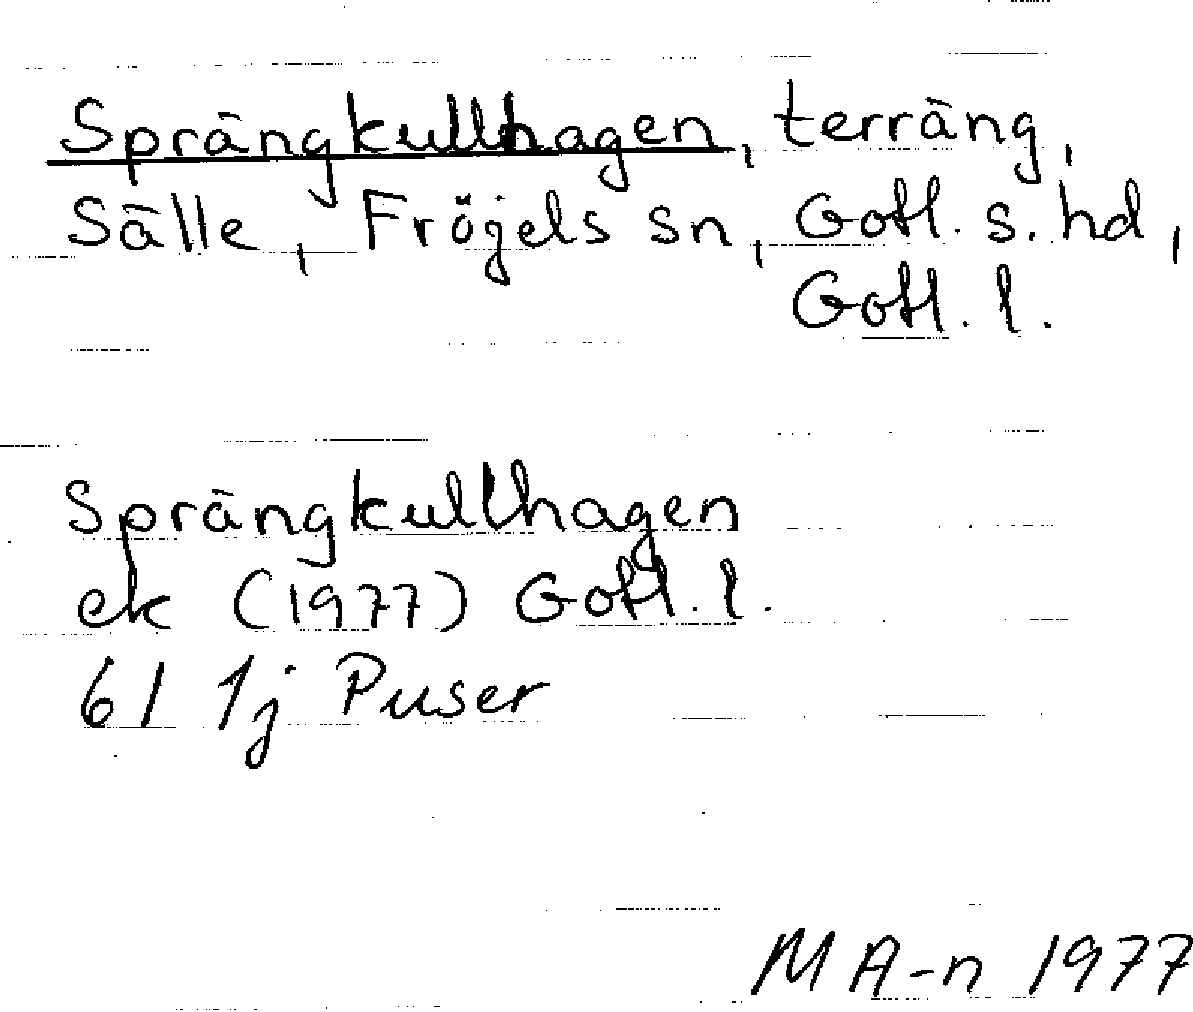 Sprängkullhagen, terräng,
Sälle, Fröjels sn, Gotl. s. hd,
Gotl. l.
Sprängkullhagen
ek (1977) Gotl. l.
61 1j Puser
M A-n 1977